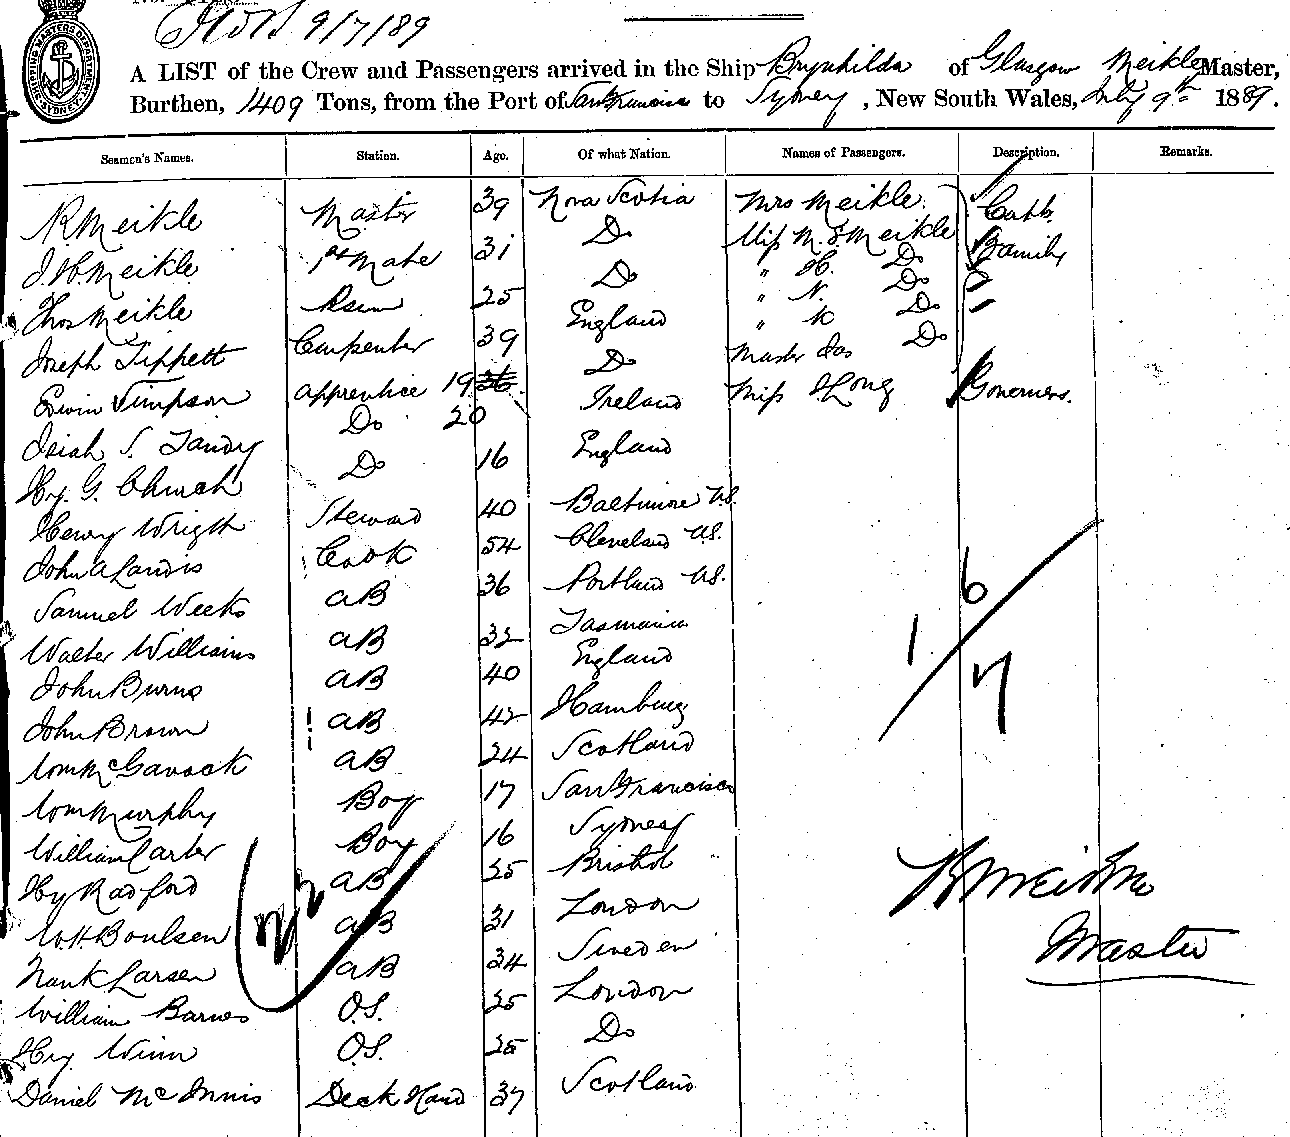 9/7/89
SHIPPING MASTERS DEPARTMENT SYDNEY
A LIST of the Crew and Passengers arrived in the Ship Brynhilda of Glasgow Meikle Master,
Burthen, 1409 Tons, from the Port of San Francisco to Sydney, New South Wales, July 9th 1889.
Seamen's Names. Station. Age. Of what Nation. Names of Passengers. Description. Remarks.
R Meikle Master 39 Nova Scotia Mrs Meikle Cabb.
J. H. Meikle 1st Mate 31 Do Miss M. S Meikle Family
Thos Meikle 25 Do " H. Do "
Joseph Tippett Carpenter 39 England " N. Do "
Edwin Simpson apprentice 19 Do " K Do
Isiah S. Tandy Do 20 Ireland Master Jas Do
Hy. G. Church Do 16 England Miss Long Governess.
Henry Wrigth Steward 40 Baltimore U.S.
John A Landis Cook 54 Cleveland U.S.
Samuel Weeks AB 36 Portland U.S.
Walter Williams AB 32 Tasmania
John Burns AB 40 England
John Brown AB 42 Hamburg
Wm McGavock AB 24 Scotland
Wm Murphy Boy 17 San Francisco
William Carter Boy 16 Sydney
Hy Radford AB 25 Bristol
W. H. Boulsen AB 31 London
Larsen AB 34 Sweden
William Barnes O.S. 25 London
Hy Winn O.S. 25 Do
Daniel McInnis Deck Hand 37 Scotland
1 6
7
22
R Meikle
Master